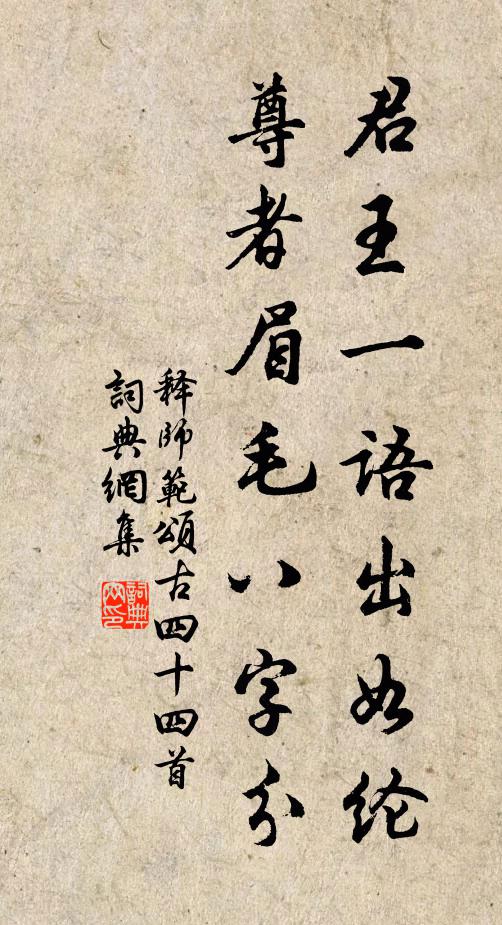 君王一语出如纶
尊者眉毛八字分
释師範頌古四十四首
詞典網集
詞典網印